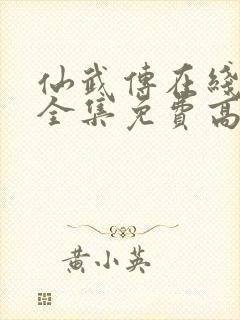 仙武傳在綫
全集免費高
黄小英